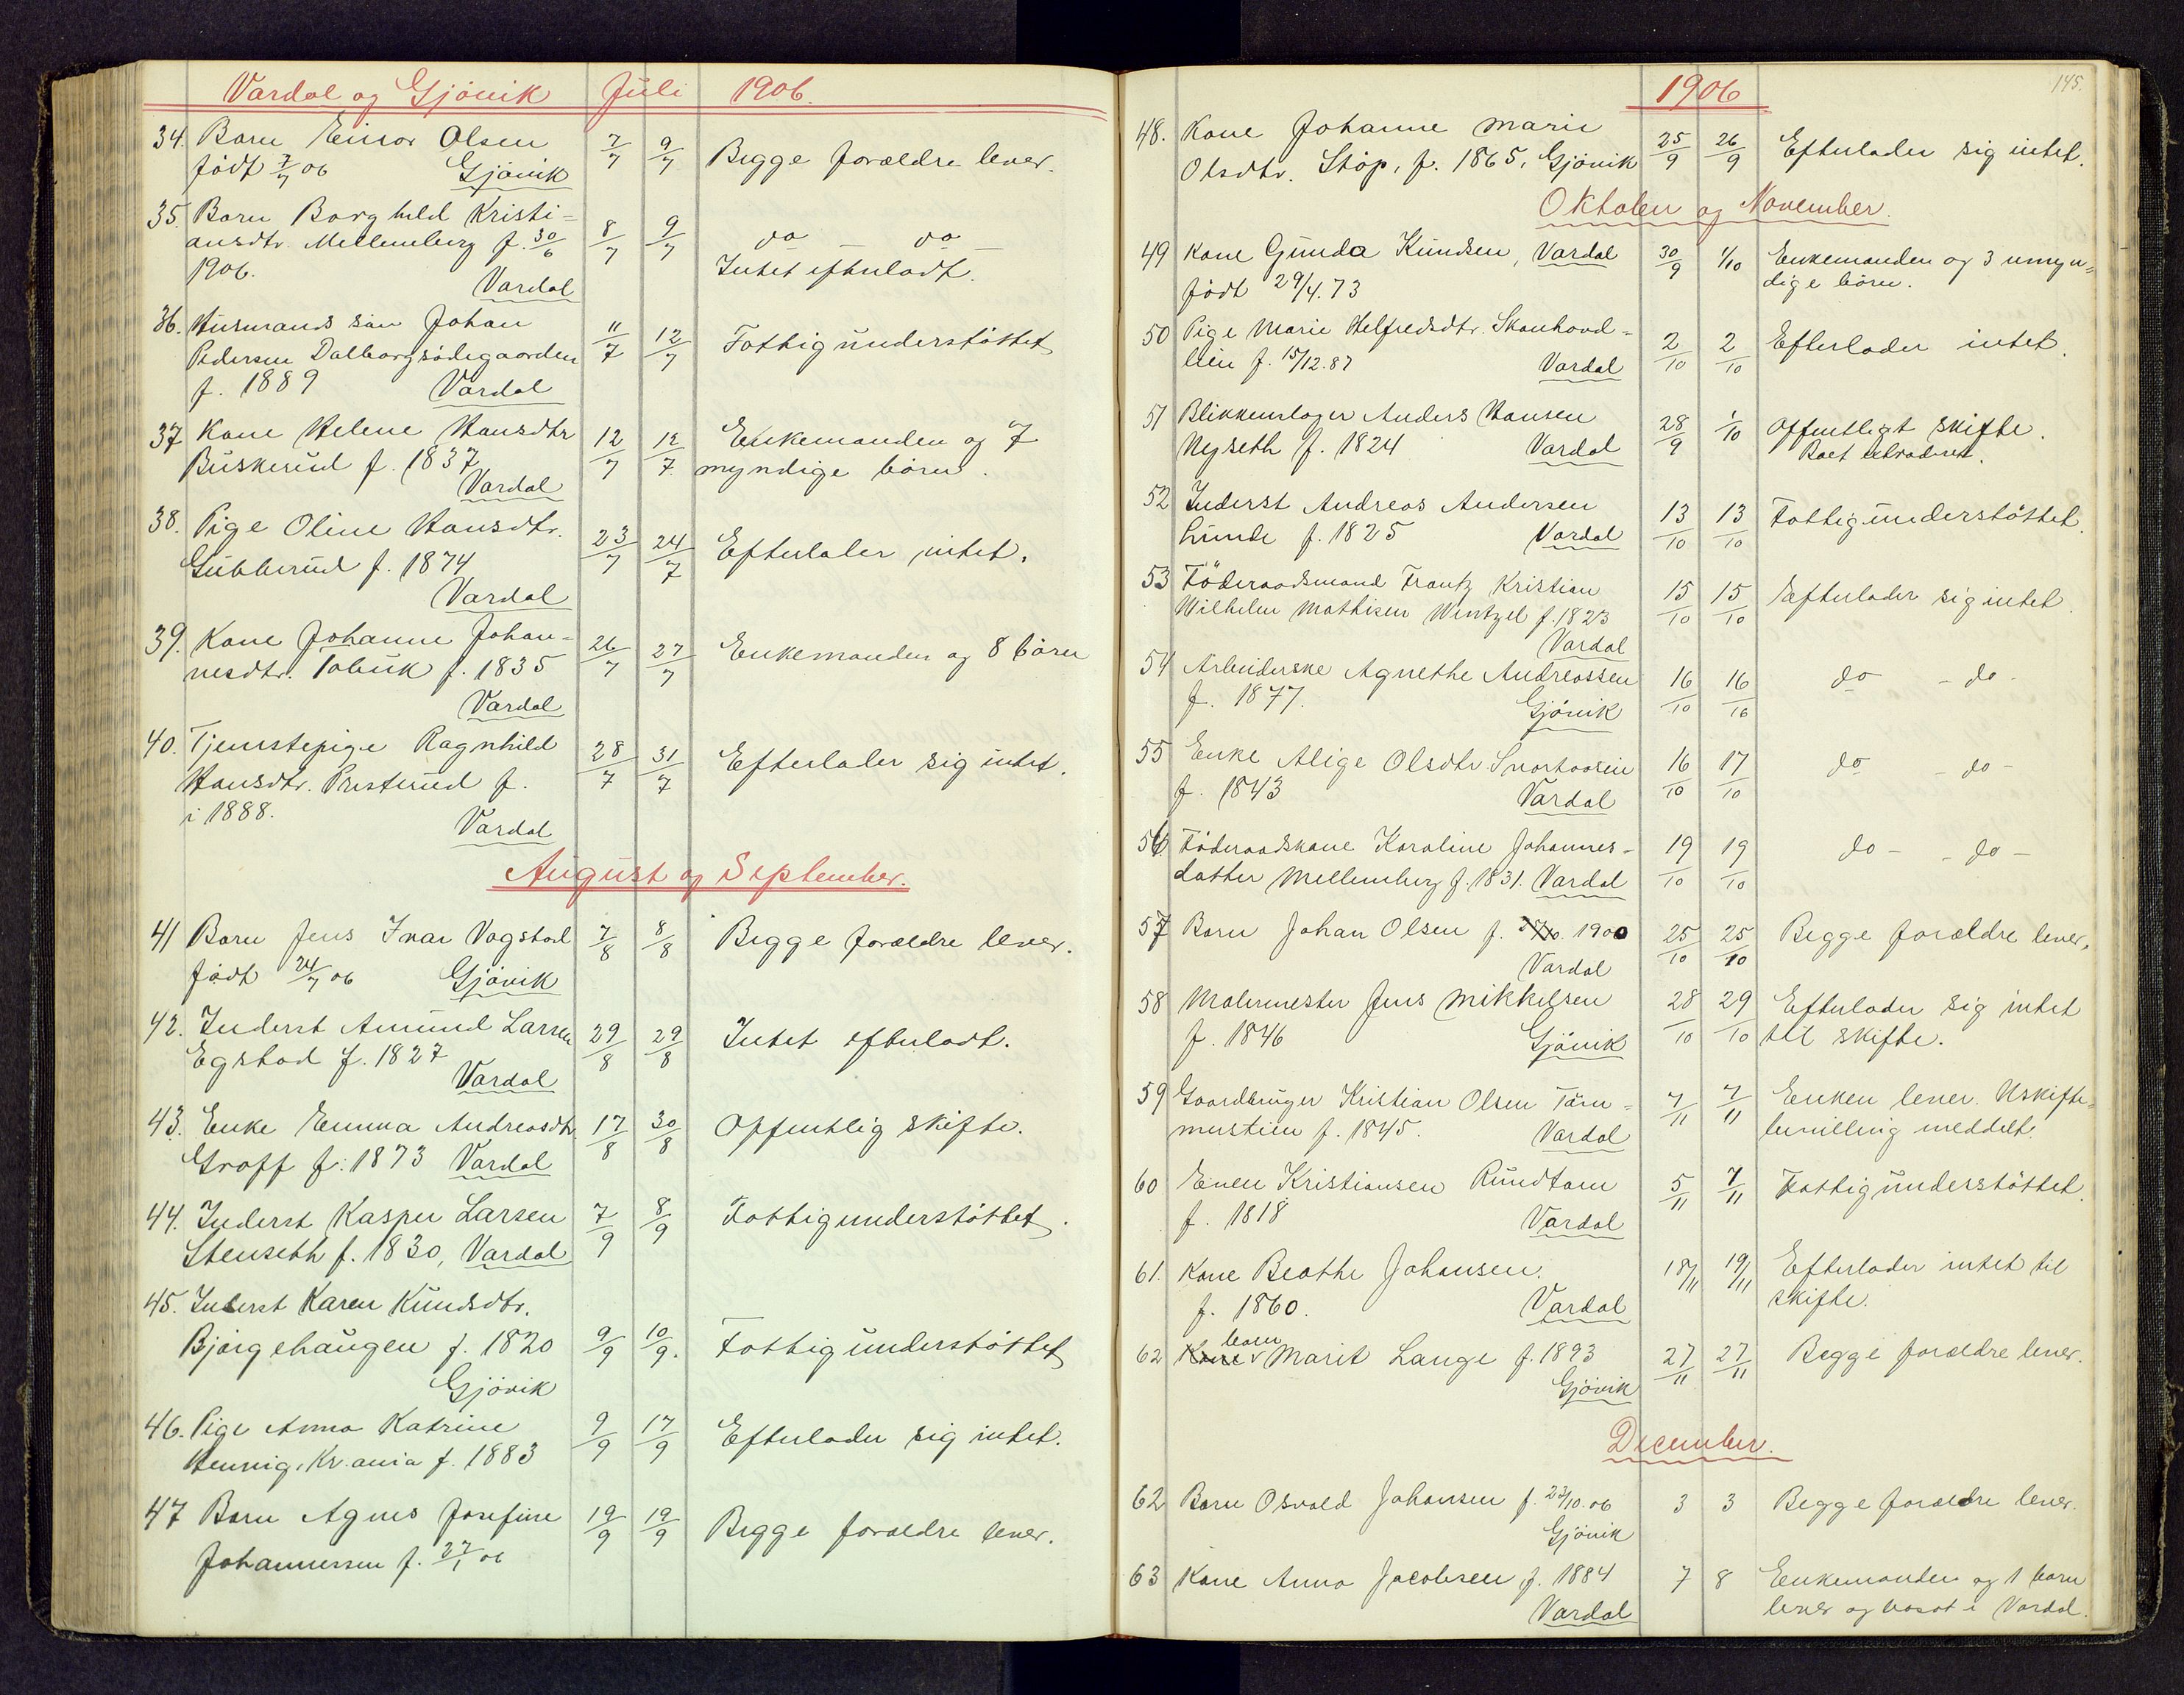 Vardal og Gjövik Juli 1906.
34. Barn Einar Olsen 7/7 9/7 Begge forældre lever.
födt 7/7 06 Gjövik
35. Barn Borghild Kristi-
ansdtr. Mellemberg f. 30/6 8/7 9/7 do — do —
1906. Vardal Intet efterladt.
36. Husmands sön Johan 11/7 12/7 Fattigunderstöttet
Pedersen Dalborgsödegaarden
f. 1889 Vardal
37 Kone Helene Hansdtr 12/7 12/7 Enkemanden og 7
Buskerud f. 1837 myndige börn.
Vardal
38. Pige Oline Hansdtr. 23/7 24/7 Efterlater intet.
Gubberud f. 1874
Vardal
39. Kone Johanne Johan- 26/7 27/7 Enkemanden og 8 börn
nesdtr. f. 1835
Vardal
40. Tjenstepige Ragnhild 28/7 31/7 Efterlater sig intet.
Hansdtr. Presterud f.
i 1888. Vardal
August og September.
41 Barn Jens Ivar Vagstad 7/8 8/8 Begge forældre lever.
födt 24/7 06 Gjövik
42. Inderst Amund Larsen 29/8 29/8 Intet efterladt.
Egstad f. 1827
Vardal
43. Enke Emma Andreasdtr 17/8 30/8 Offentlig skifte.
Graff f. 1873 Vardal
44. Inderst Kasper Larsen 7/9 8/9 Fattigunderstöttet.
Stenseth f. 1830, Vardal
45. Inderst Karen Knudsdtr.
Bjørgehaugen f. 1820 9/9 10/9. Fattigunderstöttet
Gjövik
46. Pige Anna Katrine 9/9 17/9 Efterlader sig intet.
Hennig, Kr.ania f. 1883
47 Barn Agnes Josefine 19/9 19/9 Begge forældre lever.
Johannessen f. 27/1 06
1906 145.
48. Kone Johanne Marie 25/9 26/9 Efterlader sig intet.
Olsdtr. Stöp, f. 1865, Gjövik
Oktober og November.
49 Kone Gunda Knudsen, Vardal 30/9 1/10 Enkemanden og 3 umyn-
födt 29/4.73 dige börn.
50 Pige Marie Helfredsdtr. Skonhovd- 2/10 2/10 Efterlader intet.
lien f. 15/12.87 Vardal
51 Blikkenslager Anders Hansen 28/9 1/10 Offentligt skifte.
Nyseth f. 1824 Vardal Boet extraderet.
52 Inderst Andreas Andersen 13/10 13/10 Fattigunderstöttet.
Lunde f. 1825 Vardal
53 Föderaadsmand Frantz Kristian 15/10 15/10 Efterlader sig intet.
Wilhelm Mathisen Wentzel f. 1823
Vardal
54 Arbeiderske Agnethe Andreassen 16/10 16/16 do - do -
f. 1877. Gjövik
55 Enke Alige Olsdtr 16/10 17/10 do - do -
f. 1843 Vardal
56 Föderaadskone Karoline Johannes- 19/10 19/10 do - - do -
datter Mellemberg f. 1831. Vardal
57 Barn Johan Olsen f. 1900 25/10 25/10 Begge forældre lever.
Vardal
58 Malermester Jens Mikkelsen 28/10 29/10 Efterlader sig intet
f. 1846 Gjövik til skifte.
59 Gaardbruger Kristian Olsen Töm- 7/11 7/11 Enken lever. Uskifte-
merstien f. 1845. Vardal bevilling meddelt.
60 Even Kristiansen Rundtom 5/11 7/11 Fattigunderstöttet.
f. 1818 Vardal
61. Kone Beathe Johansen. 18/11 19/11 Efterlader intet til
f. 1860. Vardal skifte.
barn
62 Kone Marit Lange f. 1893 27/11 27/11 Begge forældre lever.
Gjövik
December.
62 Barn Osvald Johansen f. 23/10.06 3 3 Begge forældre lever.
Gjövik
63 Kone Anna Jacobsen f. 1884 7 8 Enkemanden og 1 barn
Vardal lever og bosat i Vardal.